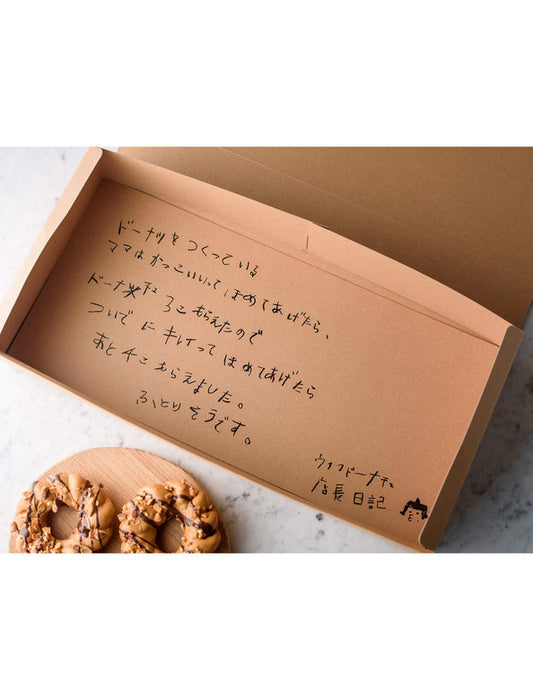 ドーナツを つくっている
ママは かっこいいって ほめてあげたら、
ドーナツ 3こ もらえたので
ついでに キレイって ほめてあげたら
あと 4こ もらえました。
ふとりそうです。
店長日記